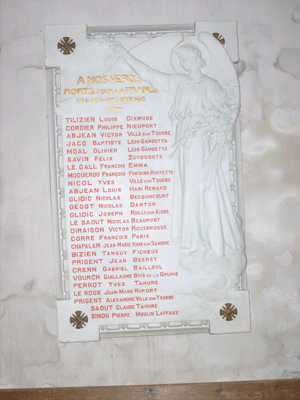 A NOS HEROS
MORTS POUR LA FRANCE
TILIZIEN LOUIS DIXMUDE
CORDIER PHILIPPE NIEUPORT
ABJEAN VICTOR VILLE SUR TOURBE
JACQ BAPTISTE LÉON GAMBETTA
MOAL OLIVIER LÉON GAMBETTA
SAVIN FÉLIX ZUYDCOOTE
LE GALL FRANCOIS EMMA
MOGUEROU FRANCOIS FONTAINE HOUYETTE
NICOL YVES VILLE SUR TOURBE
ABJEAN LOUIS HARI RENARD
GLIDIC NICOLAS BECQUINCOURT
GEGOT NICOLAS DANTON
GLIDIC JOSEPH
LE SAOUT NICOLAS BEAUMONT
DIRAISON VICTOR ROUSBRUGGE
CORRE FRANCOIS PARIS
CHAPALAIN JEAN-MARIE HAM SUR SAMBRE
BIZIEN TANGUY FICHEUX
PRIGENT JEAN BEERST
CRENN GABRIEL BAILLEUL
VOURCH GUILLAUME BOIS DE LA GRURIE
PERROT YVES TAHURE
LE ROUX JEAN-MARIE RIPONT
PRIGENT ALEXANDRE VILLE SUR TOURBE
SAOUT CLAUDE TAHURE
SINOU PIERRE MOULIN LAFFAUX